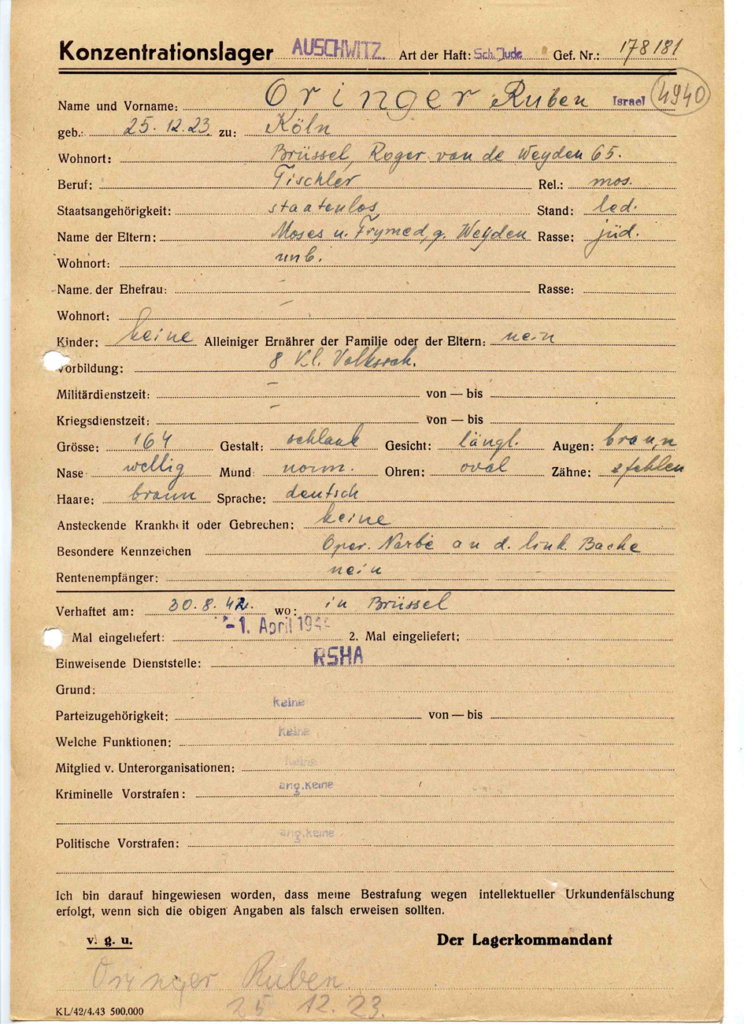 Konzentrationslager AUSCHWITZ. Art der Haft: Sch. Jude Gef. Nr.: 178181
Name und Vorname: Oringer Ruben Israel 4940
geb.: 25.12.23. zu: Köln
Wohnort: Brüssel, Roger van de Weyden 65.
Beruf: Tischler Rel.: mos.
Staatsangehörigkeit: staatenlos Stand: led.
Name der Eltern: Moses u. Frymed, g. Weyden Rasse: jüd.
Wohnort: unb.
Name der Ehefrau: – Rasse:
Wohnort: –
Kinder: keine Alleiniger Ernährer der Familie oder der Eltern: nein
Vorbildung: 8 Kl. Volkssch.
Militärdienstzeit: – von — bis
Kriegsdienstzeit: – von — bis
Grösse: 164 Gestalt: schlank Gesicht: längl. Augen: braun
Nase wellig Mund: norm. Ohren: oval Zähne: 2 fehlen
Haare: braun Sprache: deutsch
Ansteckende Krankheit oder Gebrechen: keine
Besondere Kennzeichen Oper. Narbe an d. link. Backe
Rentenempfänger: nein
Verhaftet am: 30.8.42. wo: in Brüssel
Mal eingeliefert: -1. April 194 2. Mal eingeliefert:
Einweisende Dienststelle: RSHA
Grund:
Parteizugehörigkeit: keine von — bis
Welche Funktionen: keine
Mitglied v. Unterorganisationen: keine
Kriminelle Vorstrafen: ang. keine
Politische Vorstrafen: ang. keine
Ich bin darauf hingewiesen worden, dass meine Bestrafung wegen intellektueller Urkundenfälschung
erfolgt, wenn sich die obigen Angaben als falsch erweisen sollten.
v. g. u. Der Lagerkommandant
Oringer Ruben
25 12. 23.
KL/42/4.43 500.000